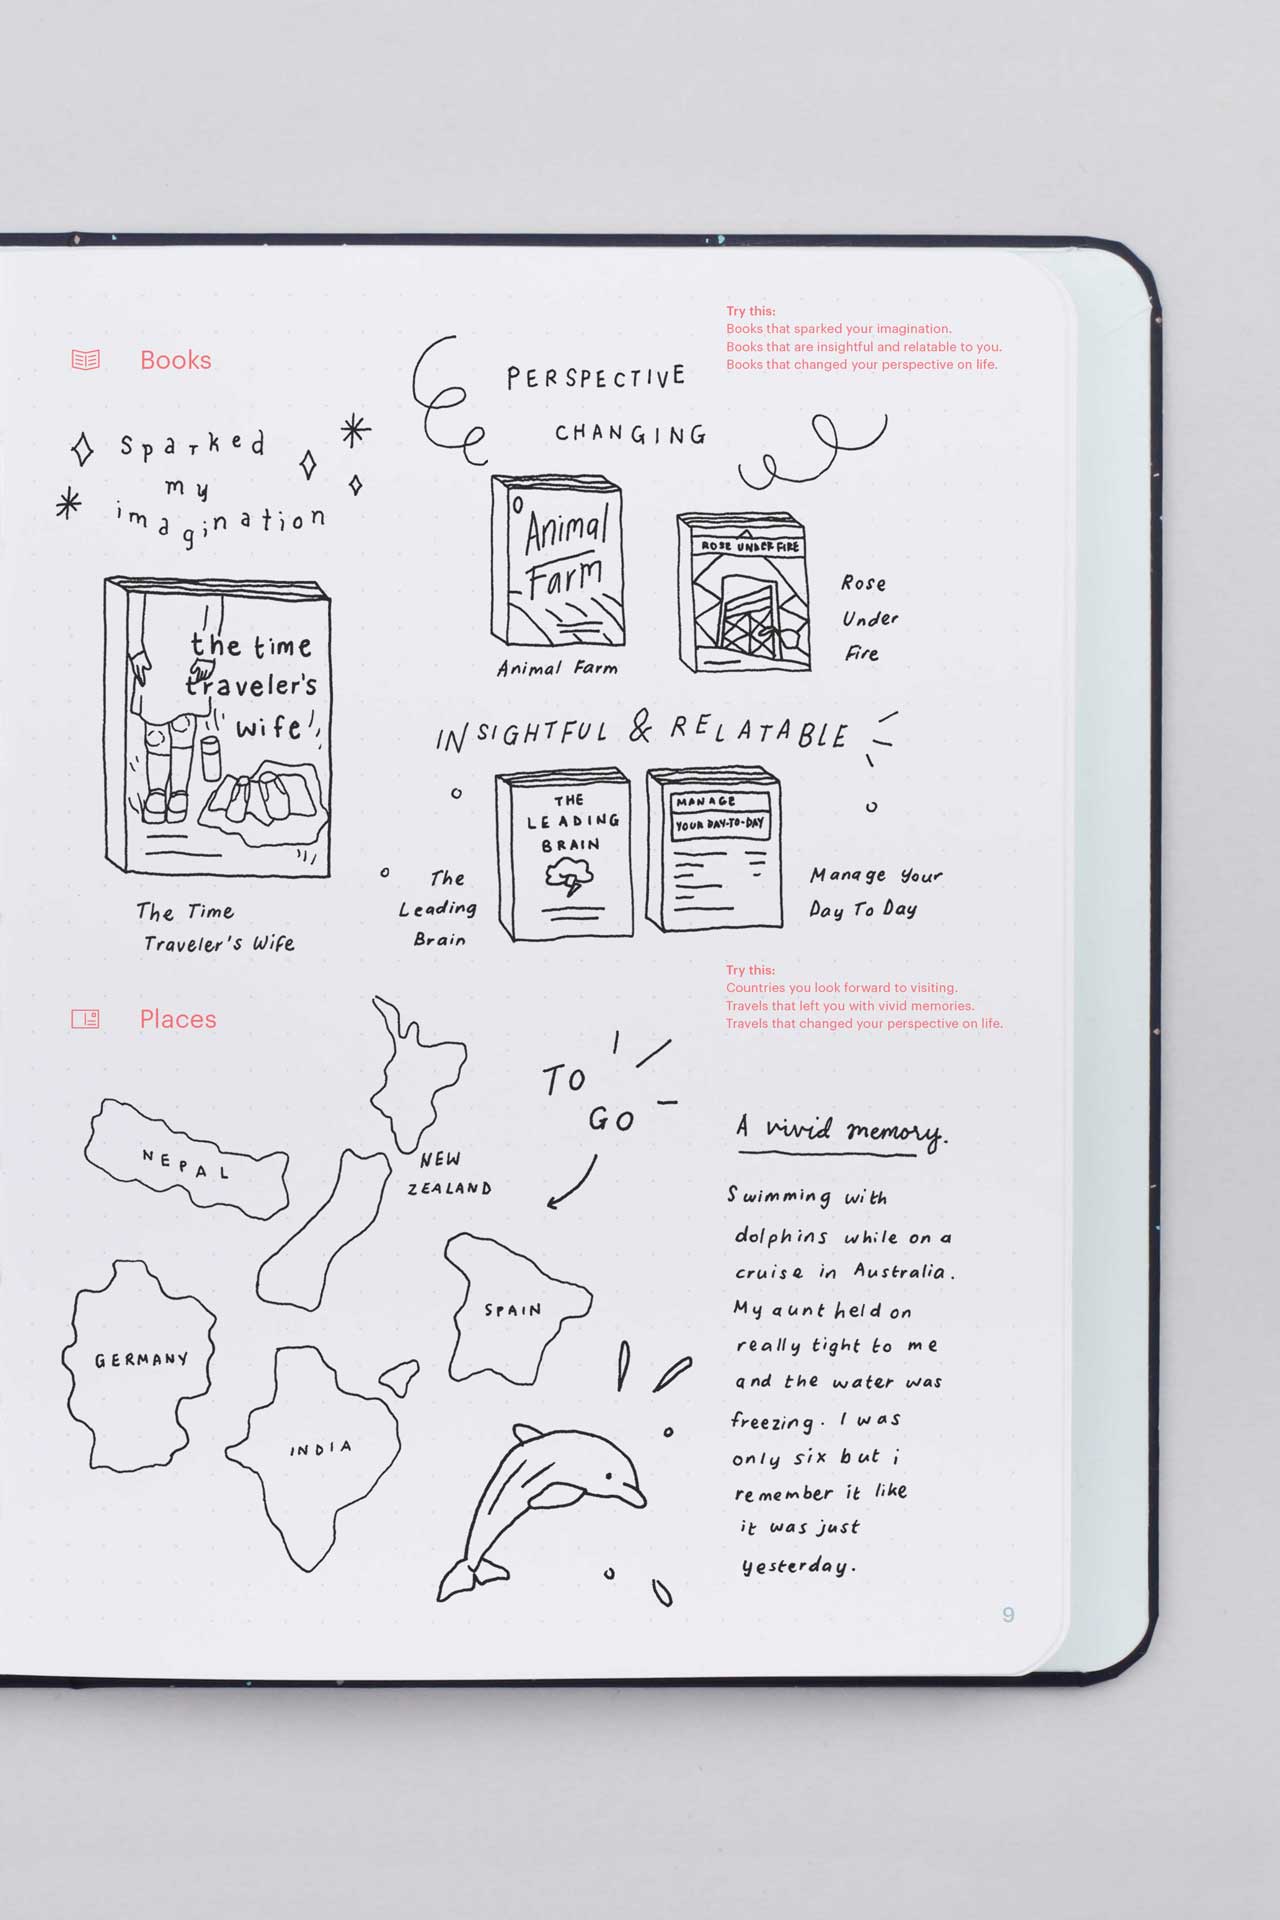 Try this:
Books that sparked your imagination.
Books that are insightful and relatable to you.
Books that changed your perspective on life.
Books
PERSPECTIVE
CHANGING
Sparked
my
imagination
Animal
Farm
Animal Farm
ROSE UNDER FIRE
Rose
Under
Fire
the time
traveler's
wife
The Time
Traveler's Wife
INSIGHTFUL & RELATABLE
THE
LEADING
BRAIN
The
Leading
Brain
MANAGE
YOUR DAY-TO-DAY
Manage Your
Day To Day
Try this:
Countries you look forward to visiting.
Travels that left you with vivid memories.
Travels that changed your perspective on life.
Places
TO
GO
NEPAL
NEW
ZEALAND
SPAIN
GERMANY
INDIA
A vivid memory.
Swimming with
dolphins while on a
cruise in Australia.
My aunt held on
really tight to me
and the water was
freezing. I was
only six but i
remember it like
it was just
yesterday.
9